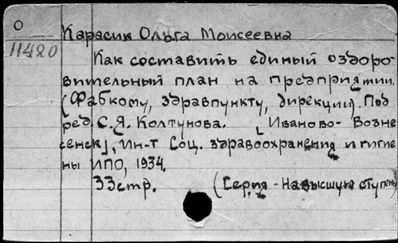 О
Карасик Ольга Моисеевна
11420
Как составить единый оздоро-
вительный план на предприятии.
(Фабкому, здравпункту, дирекции). Под
ред. С.Я. Колтунова. [Иваново-Возне
сенск], Ин-т Соц. здравоохранения и гигие
ны ИПО, 1934.
33 стр. (Серия - На высшую ступень)